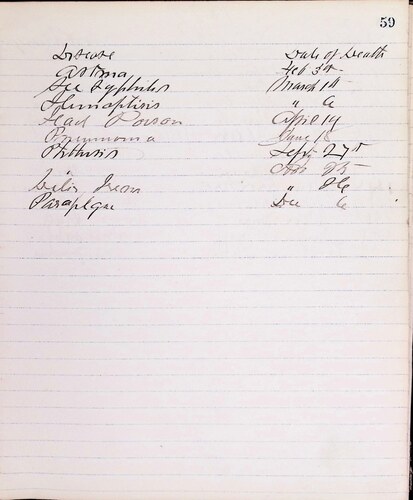 59
Disease Date of Death
Astma Feb 3rd
Sec Syphilis March 1st
Hemoptisis " 6
Lead Poison April 19
Pneumonia June 18
Phthisis Sept 27th
" 25
" 26
Parapleg Dec 6